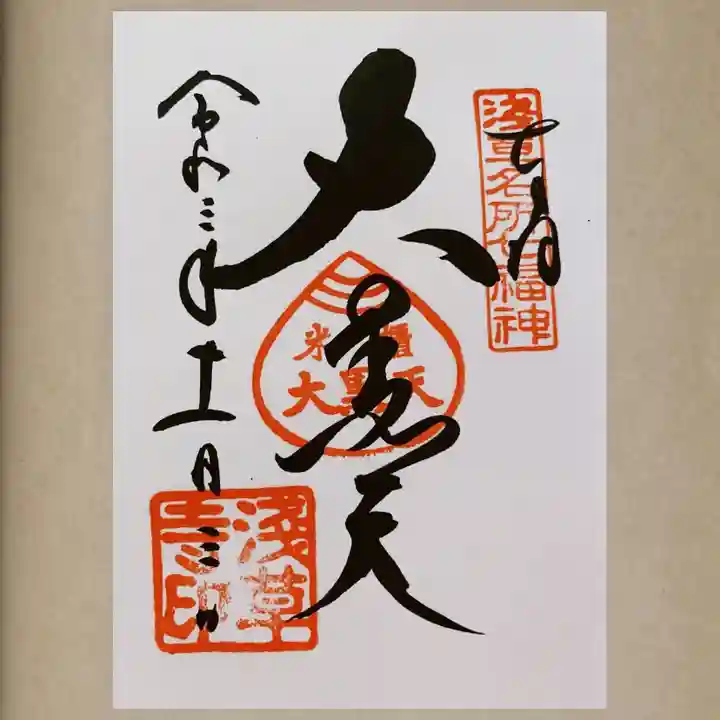 浅草名所七福神
大黒天
米櫃
大黒天
令和三年十一月三日
淺草
寺印